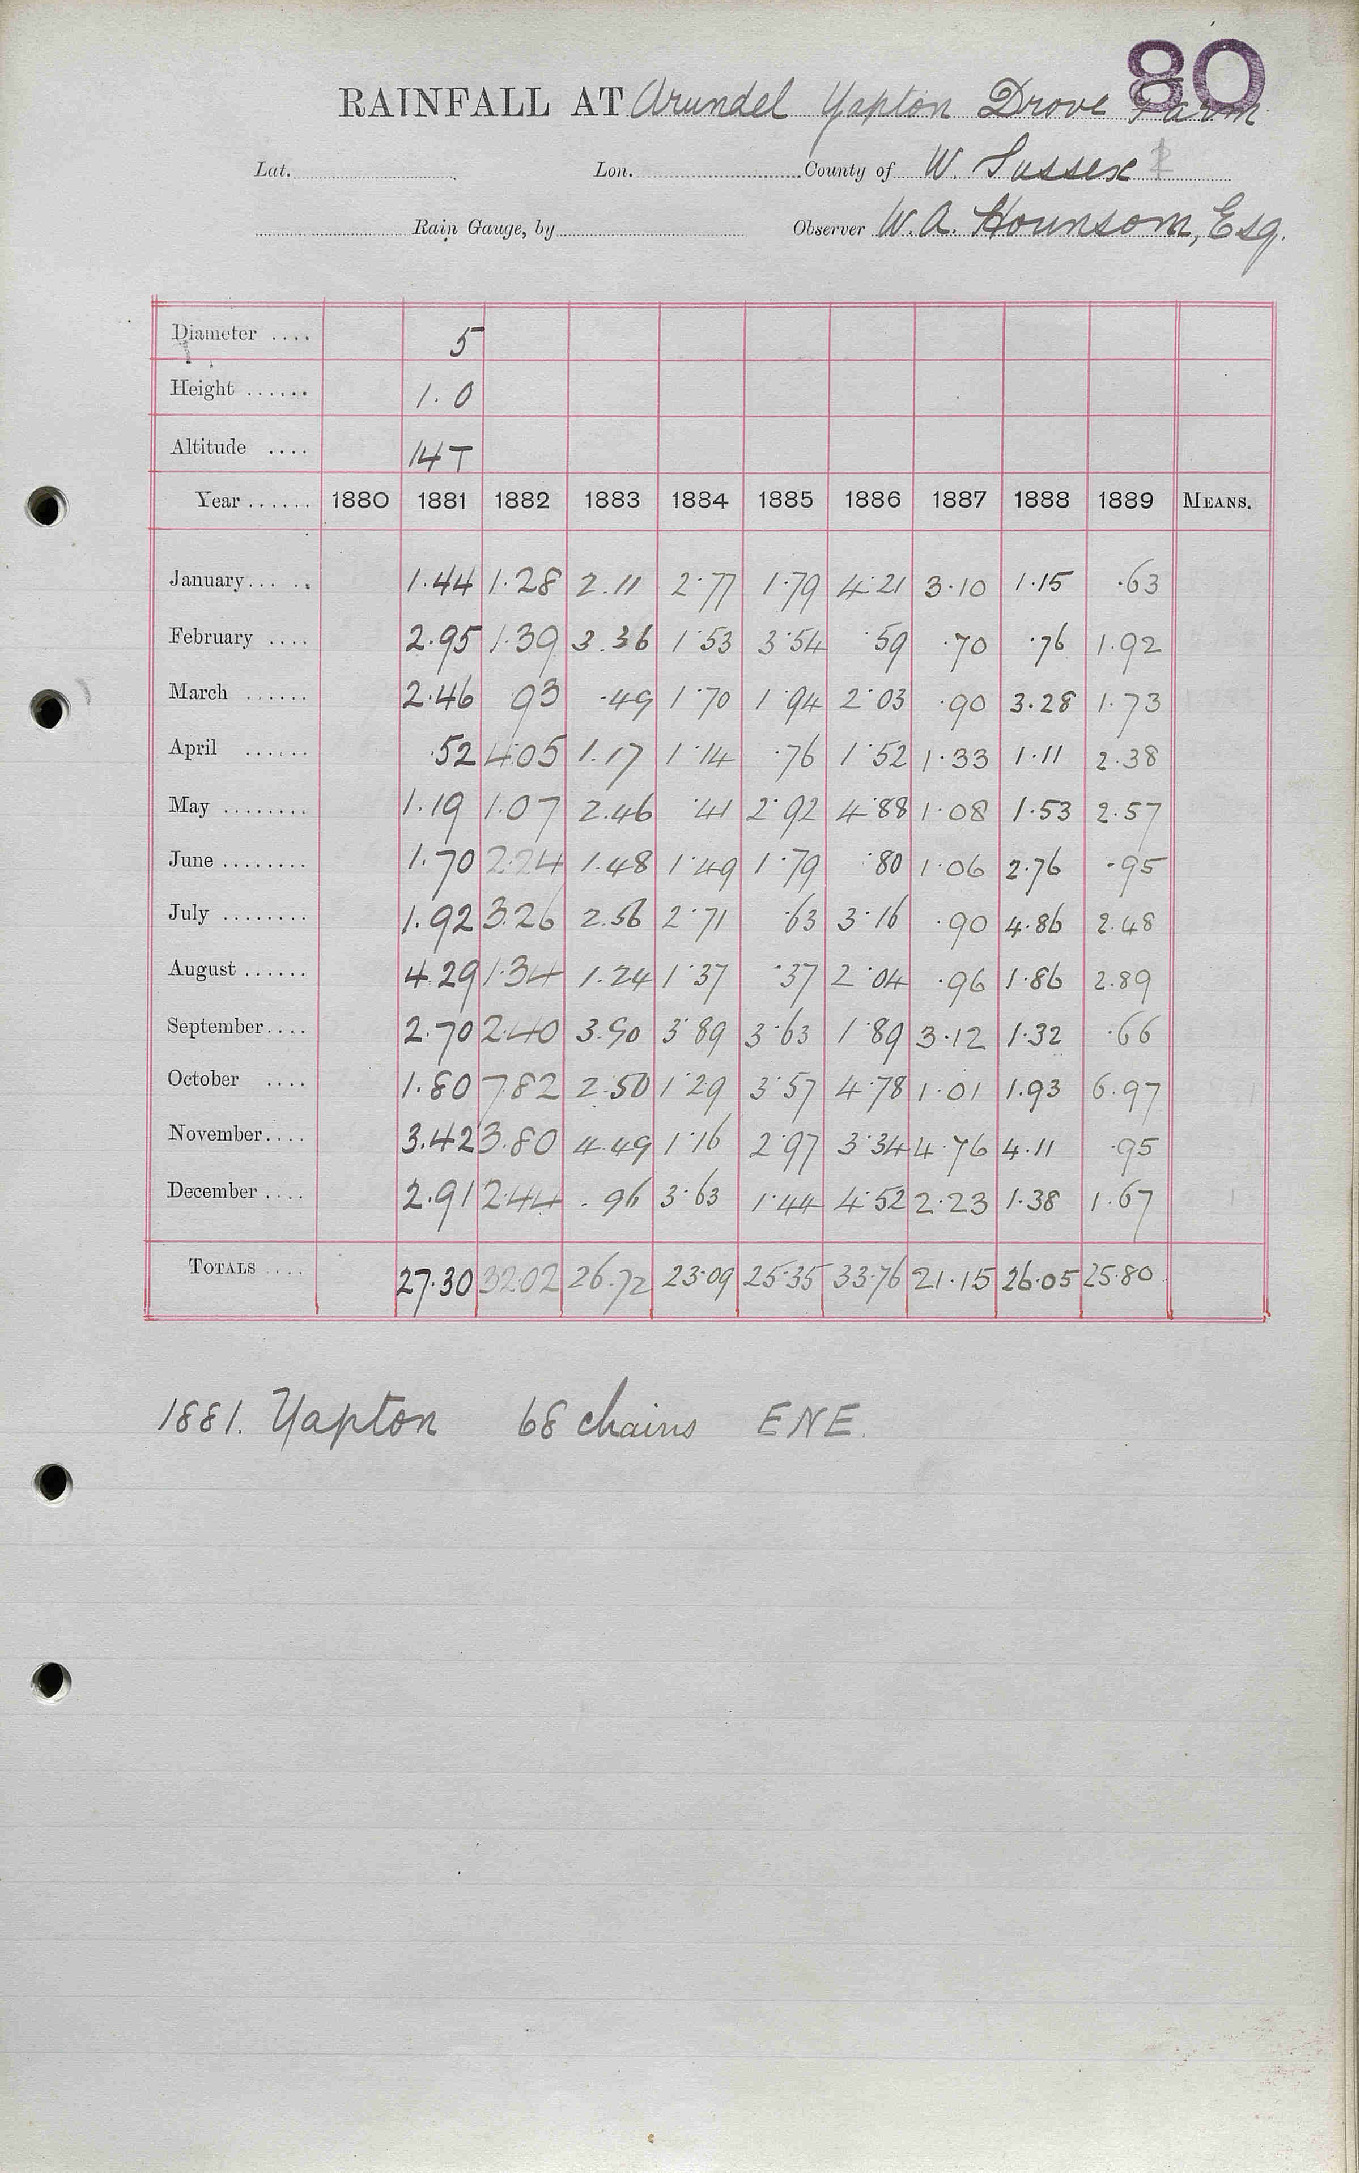 80
RAINFALL AT Arundel Yapton Drove Farm
Lat. Lon. County of W. Sussex
Rain Gauge, by Observer W. A. Hounsom, Esq.
Diameter .... 5
Height ...... 1.0
Altitude .... 14 T
Year ...... 1880 1881 1882 1883 1884 1885 1886 1887 1888 1889 MEANS.
January...... 1.44 1.28 2.11 2.77 1.79 4.21 3.10 1.15 .63
February .... 2.95 1.39 3.36 1.53 3.54 .59 .70 .76 1.92
March ...... 2.46 .93 .49 1.70 1.94 2.03 .90 3.28 1.73
April ...... .52 4.05 1.17 1.14 .76 1.52 1.33 1.11 2.38
May ........ 1.19 1.07 2.46 .41 2.92 4.88 1.08 1.53 2.57
June ........ 1.70 2.24 1.48 1.49 1.79 .80 1.06 2.76 .95
July ........ 1.92 3.26 2.56 2.71 .63 3.16 .90 4.86 2.48
August ...... 4.29 1.34 1.24 1.37 .37 2.04 .96 1.86 2.89
September.... 2.70 2.40 3.90 3.89 3.63 1.89 3.12 1.32 .66
October .... 1.80 7.82 2.50 1.29 3.57 4.78 1.01 1.93 6.97
November.... 3.42 3.80 4.49 1.16 2.97 3.34 4.76 4.11 .95
December .... 2.91 2.44 .96 3.63 1.44 4.52 2.23 1.38 1.67
TOTALS .... 27.30 32.02 26.72 23.09 25.35 33.76 21.15 26.05 25.80
1881. Yapton 68 chains ENE.